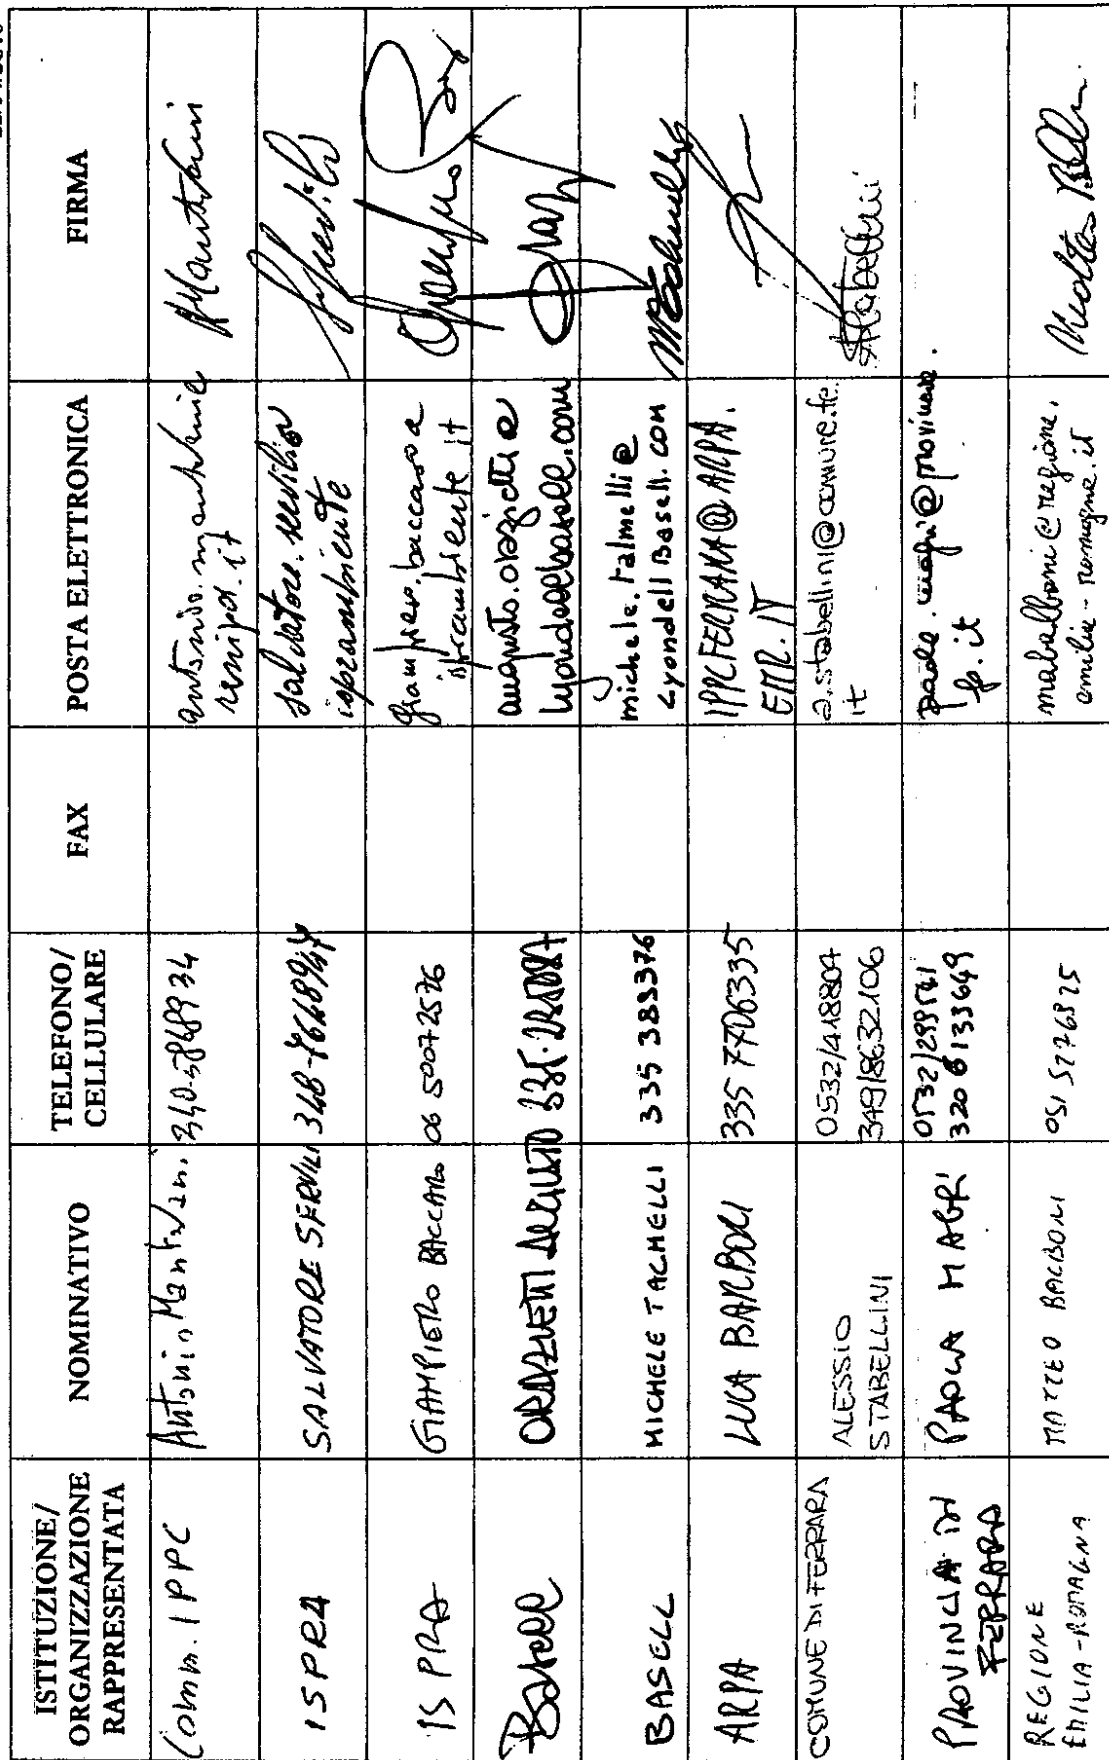 ISTITUZIONE/
ORGANIZZAZIONE
RAPPRESENTATA
NOMINATIVO
TELEFONO/
CELLULARE
FAX
POSTA ELETTRONICA
FIRMA
Comm. IPPC
Antonio Mantovani
ISPRA
SALVATORE SERVILI
ISPRA
GIAMPIERO BACCARO
06 50072576
Basell
ORAZIETTI AUGUSTO
augusto.orazietti@
lyondellbasell.com
BASELL
MICHELE TALMELLI
335 383376
michele.talmelli@
Lyondell Basell.com
ARPA
LUCA BARBONI
335 7706335
IPPCFERRARA@ARPA.
EMR.IT
COMUNE DI FERRARA
ALESSIO
STABELLINI
0532/418804
349/8632106
a.stabellini@comune.fe.
it
AStabellini
PROVINCIA DI
FERRARA
PAOLA MAGRI
0532/299541
320 6133649
paola.magri@provincia.
fe.it
REGIONE
EMILIA-ROMAGNA
MATTEO BALBONI
051 5276925
mabalboni@regione.
emilia-romagna.it